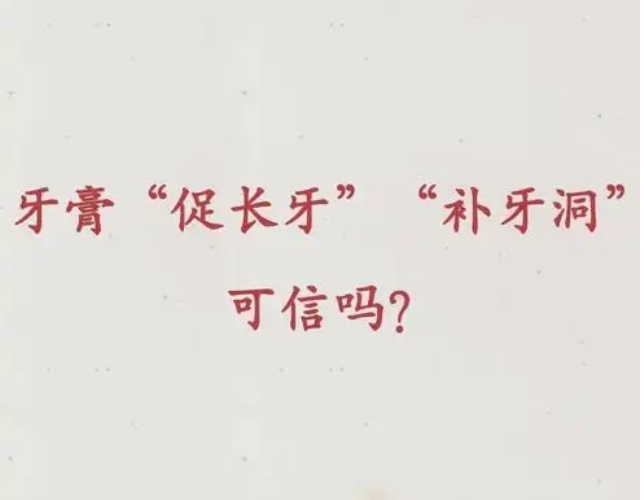 牙膏“促长牙” “补牙洞”
可信吗?